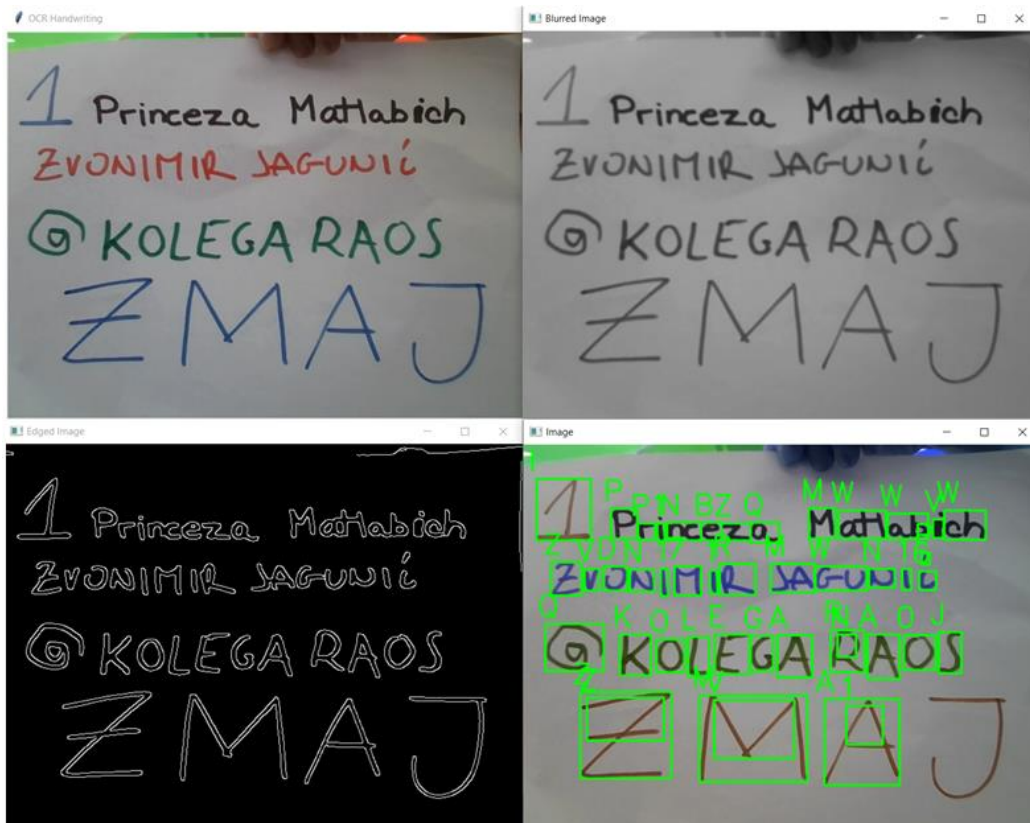 OCR Handwriting
1 Princeza Matlabich
ZVONIMIR JAGUNIĆ
@ KOLEGA RAOS
ZMAJ
Blurred Image
1 Princeza Matlabich
ZVONIMIR JAGUNIĆ
@ KOLEGA RAOS
ZMAJ
Edged Image
1 Princeza Matlabich
ZVONIMIR JAGUNIĆ
@ KOLEGA RAOS
ZMAJ
Image
P N B Z Q M W W V W
1 Princeza Matlabich
Z V D N M W N
ZVONIMIR JAGUNIĆ
K O L E G A A O J
@ KOLEGA RAOS
A
ZMAJ